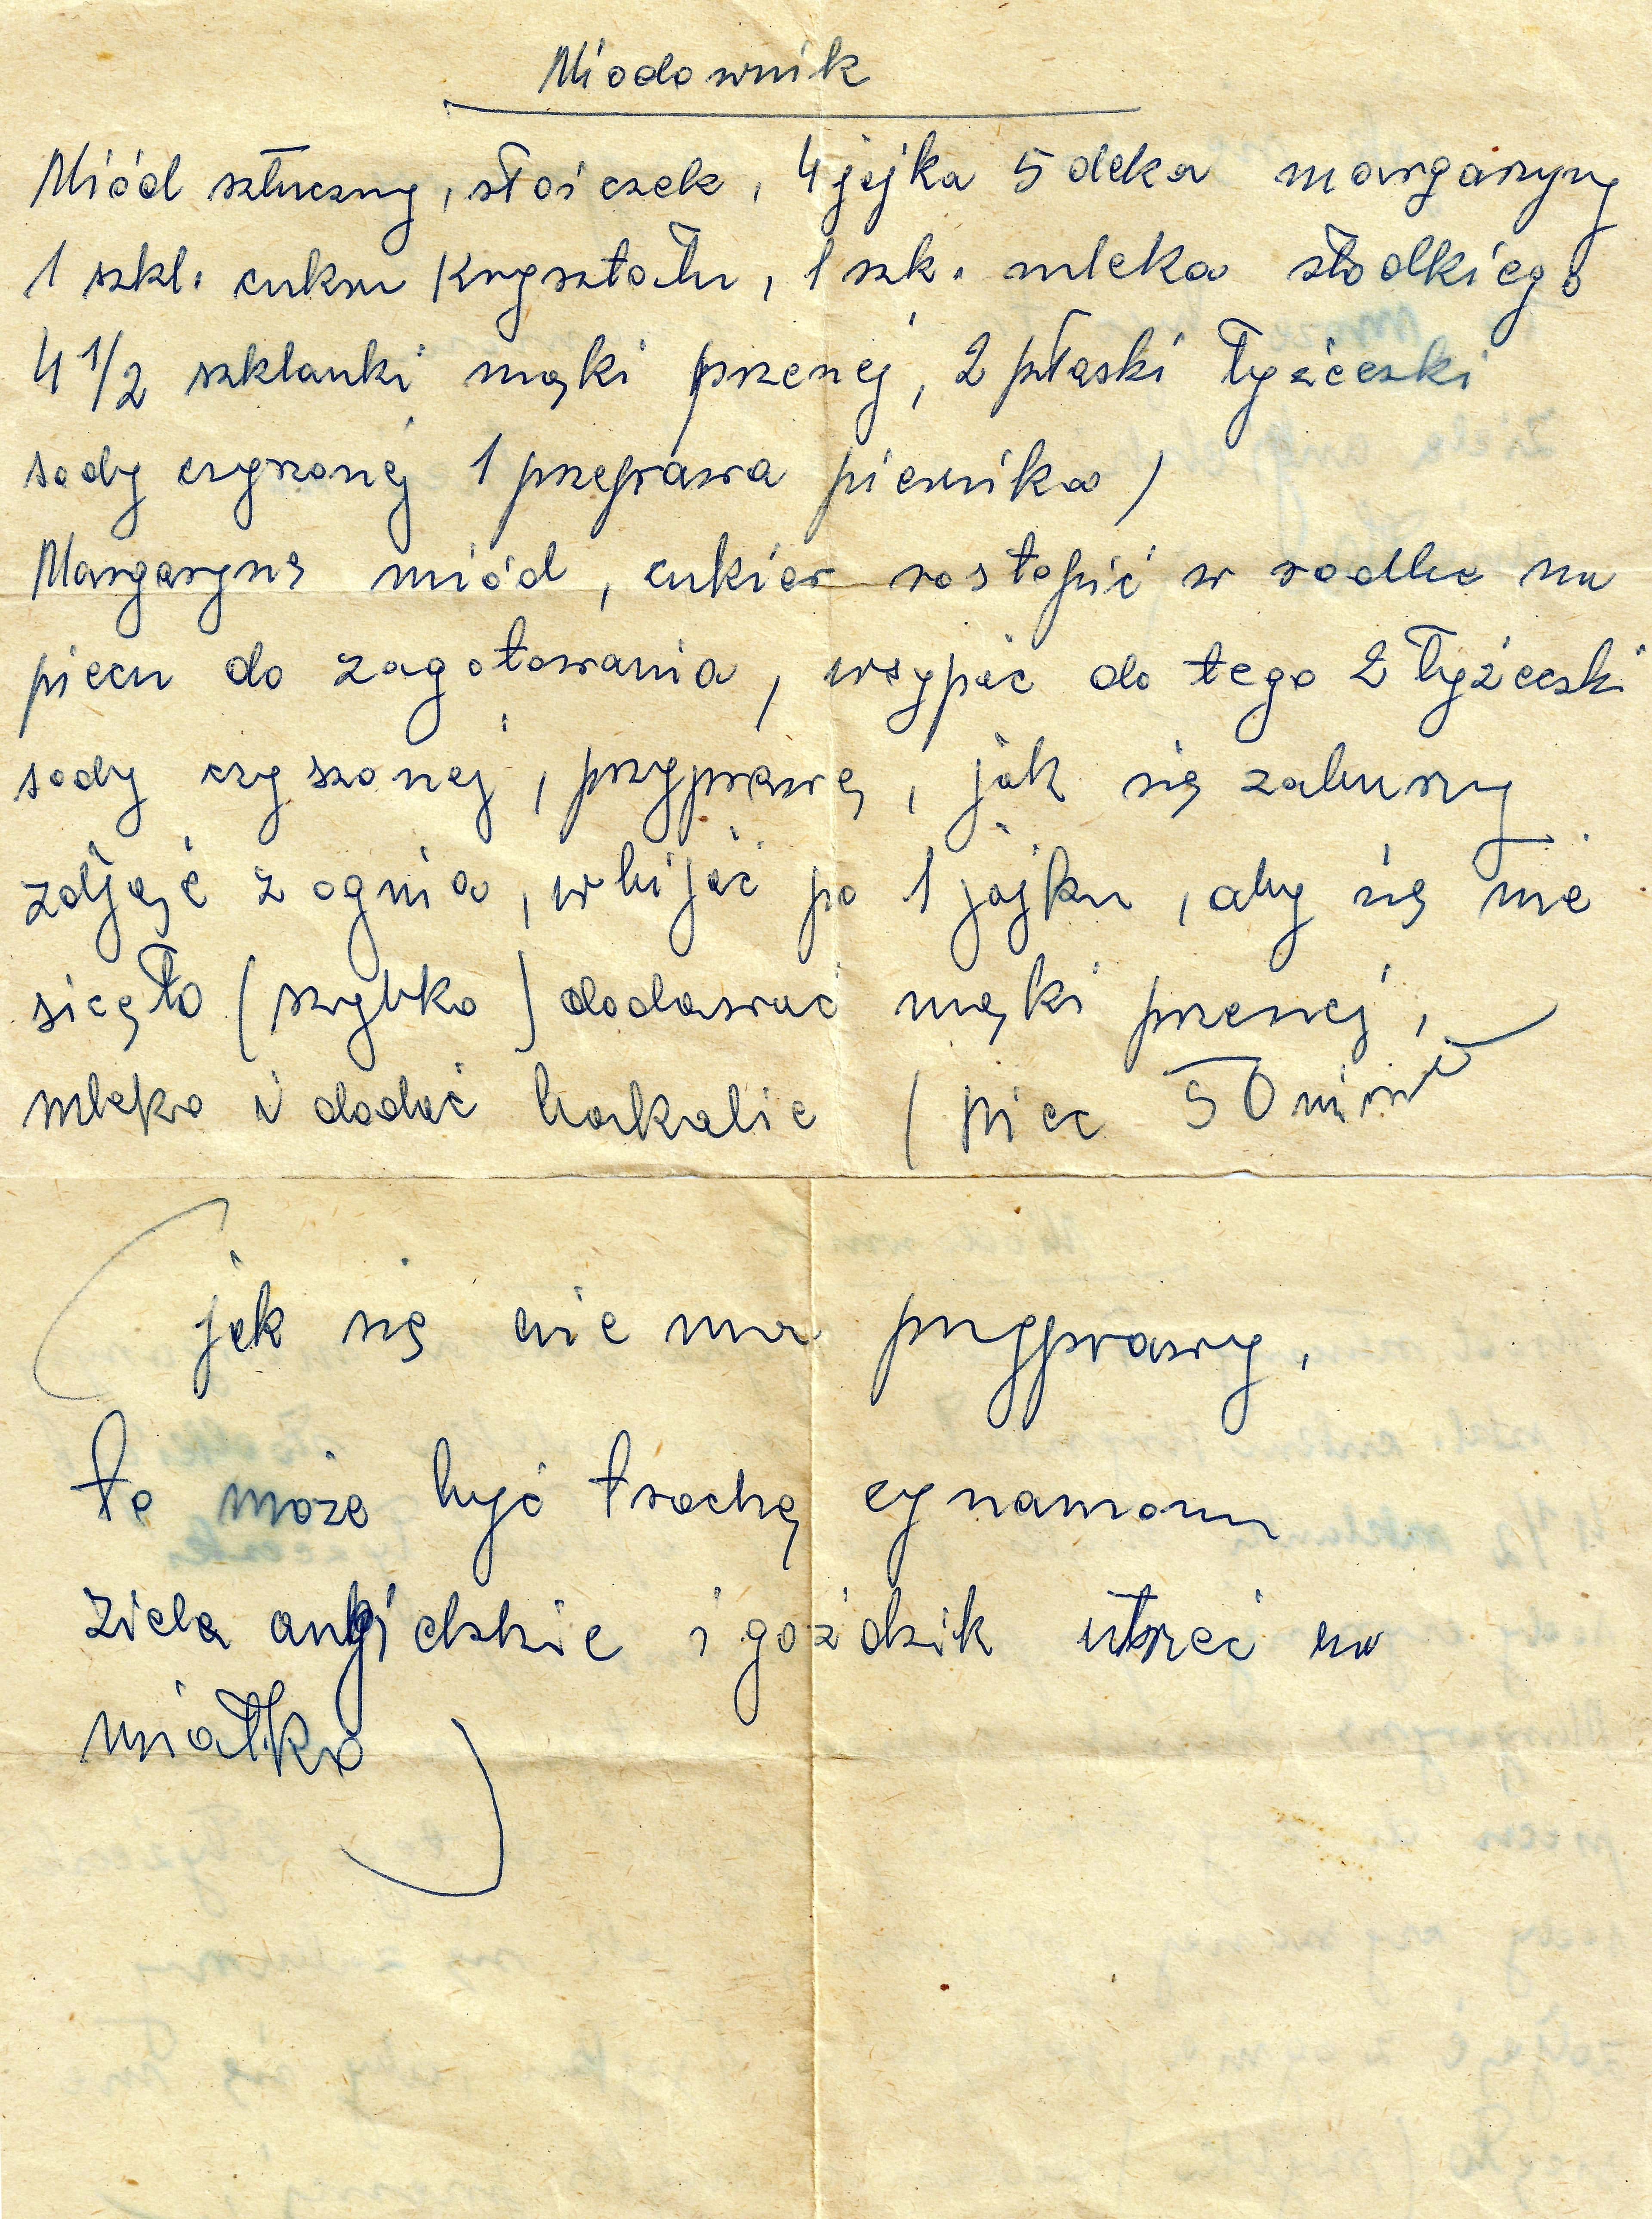 Miodownik
Miód sztuczny, słoiczek, 4 jajka 5 deka margaryny
1 szkl. cukru kryształu, 1 szk. mleka słodkiego
4 1/2 szklanki mąki przenej, 2 płaski łyżeczki
sody czyszonej 1 przeprawa piernika)
Margaryne miód, cukier rostopić w rodlu na
piecu do zagotowania, wsypać do tego 2 łyżeczki
sody czyszonej, przyprawę, jak się zaburzy
zdjąć z ognia, wbijać po 1 jajku, aby się nie
sięęło (szybko) dodawać mąki przenej,
mleko i dodać bakalie (piec 50 minut
(jak się nie ma przyprawy,
to może być trochę cynamonu
ziela angielskie i goździk utrzeć na
miałko)